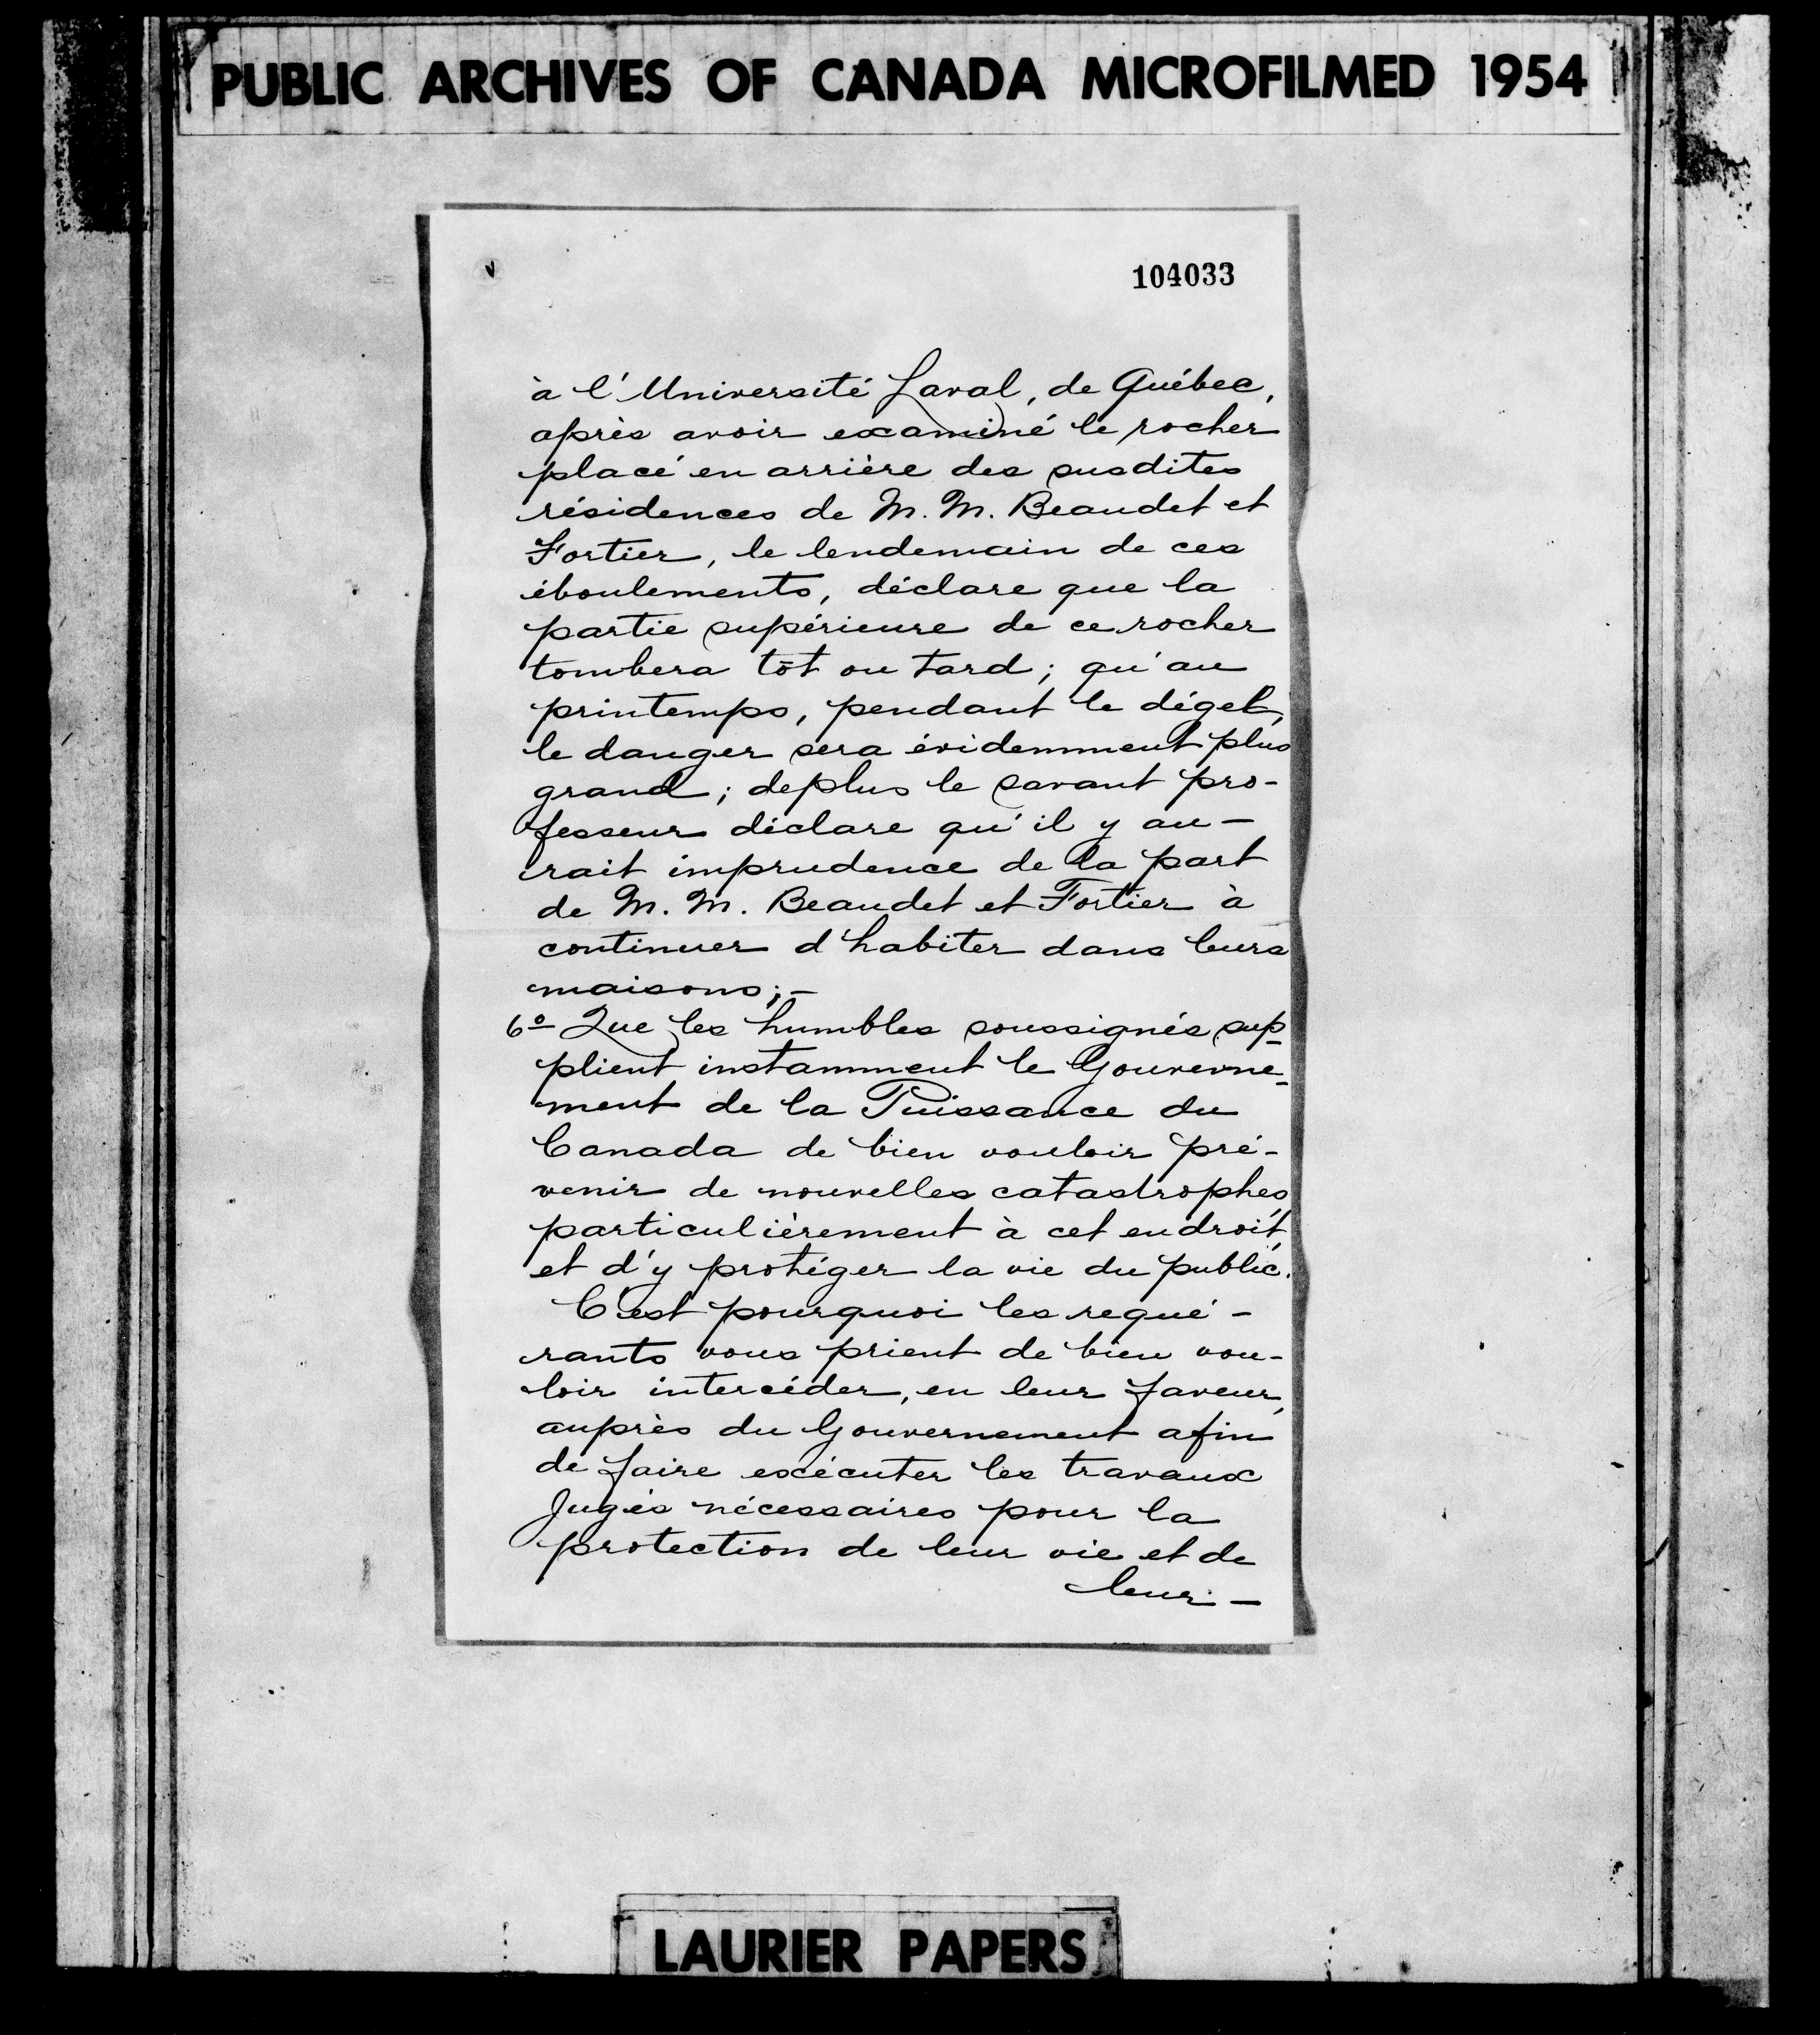 PUBLIC ARCHIVES OF CANADA MICROFILMED 1954
104033
à l'Université Laval, de Québec,
après avoir examiné le rocher
placé en arrière des susdites
résidences de M. M. Beaudet et
Fortier, le lendemain de ces
éboulements, déclare que la
partie supérieure de ce rocher
tombera tôt ou tard; qu'au
printemps, pendant le dégel,
le danger sera évidemment plus
grand; deplus le savant pro-
fesseur déclare qu'il y au-
rait imprudence de la part
de M. M. Beaudet et Fortier à
continuer d'habiter dans leurs
maisons;-
6º Que les humbles soussignés sup-
plient instamment le Gouverne-
ment de la Puissance du
Canada de bien vouloir pré-
venir de nouvelles catastrophes,
particulièrement à cet endroit,
et d'y protéger la vie du public.
C'est pourquoi les requé-
rants vous prient de bien vou-
loir intercéder, en leur faveur,
auprès du Gouvernement afin
de faire exécuter les travaux
jugés nécessaires pour la
protection de leur vie et de
leur -
LAURIER PAPERS